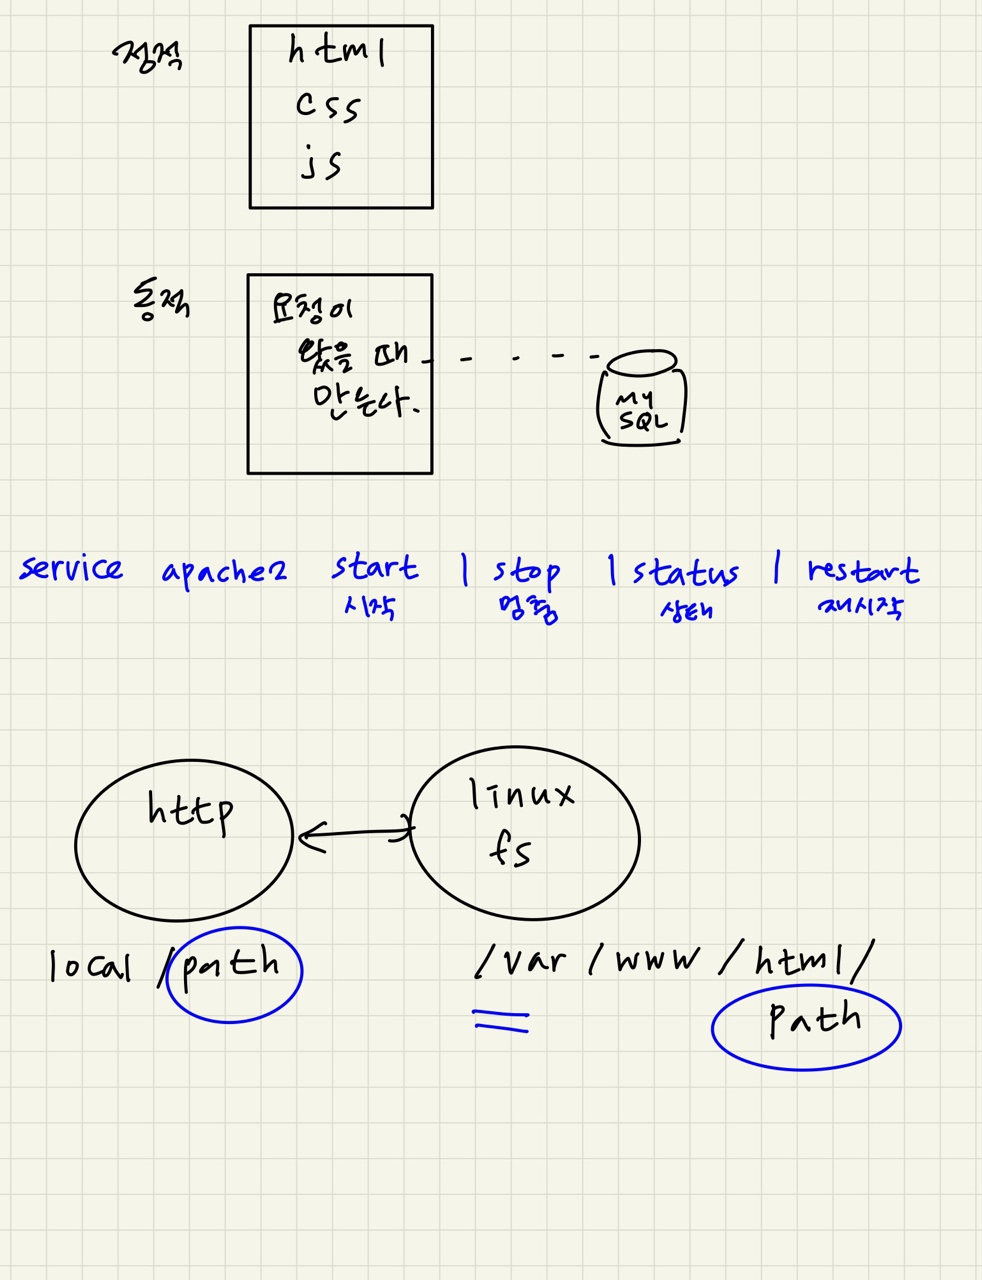 정적
html
css
js
동적
요청이
왔을 때
만든다.
MY
SQL
service apache2 start | stop | status | restart
시작 멈춤 상태 재시작
http
linux
fs
local /path
/var /www /html/
path